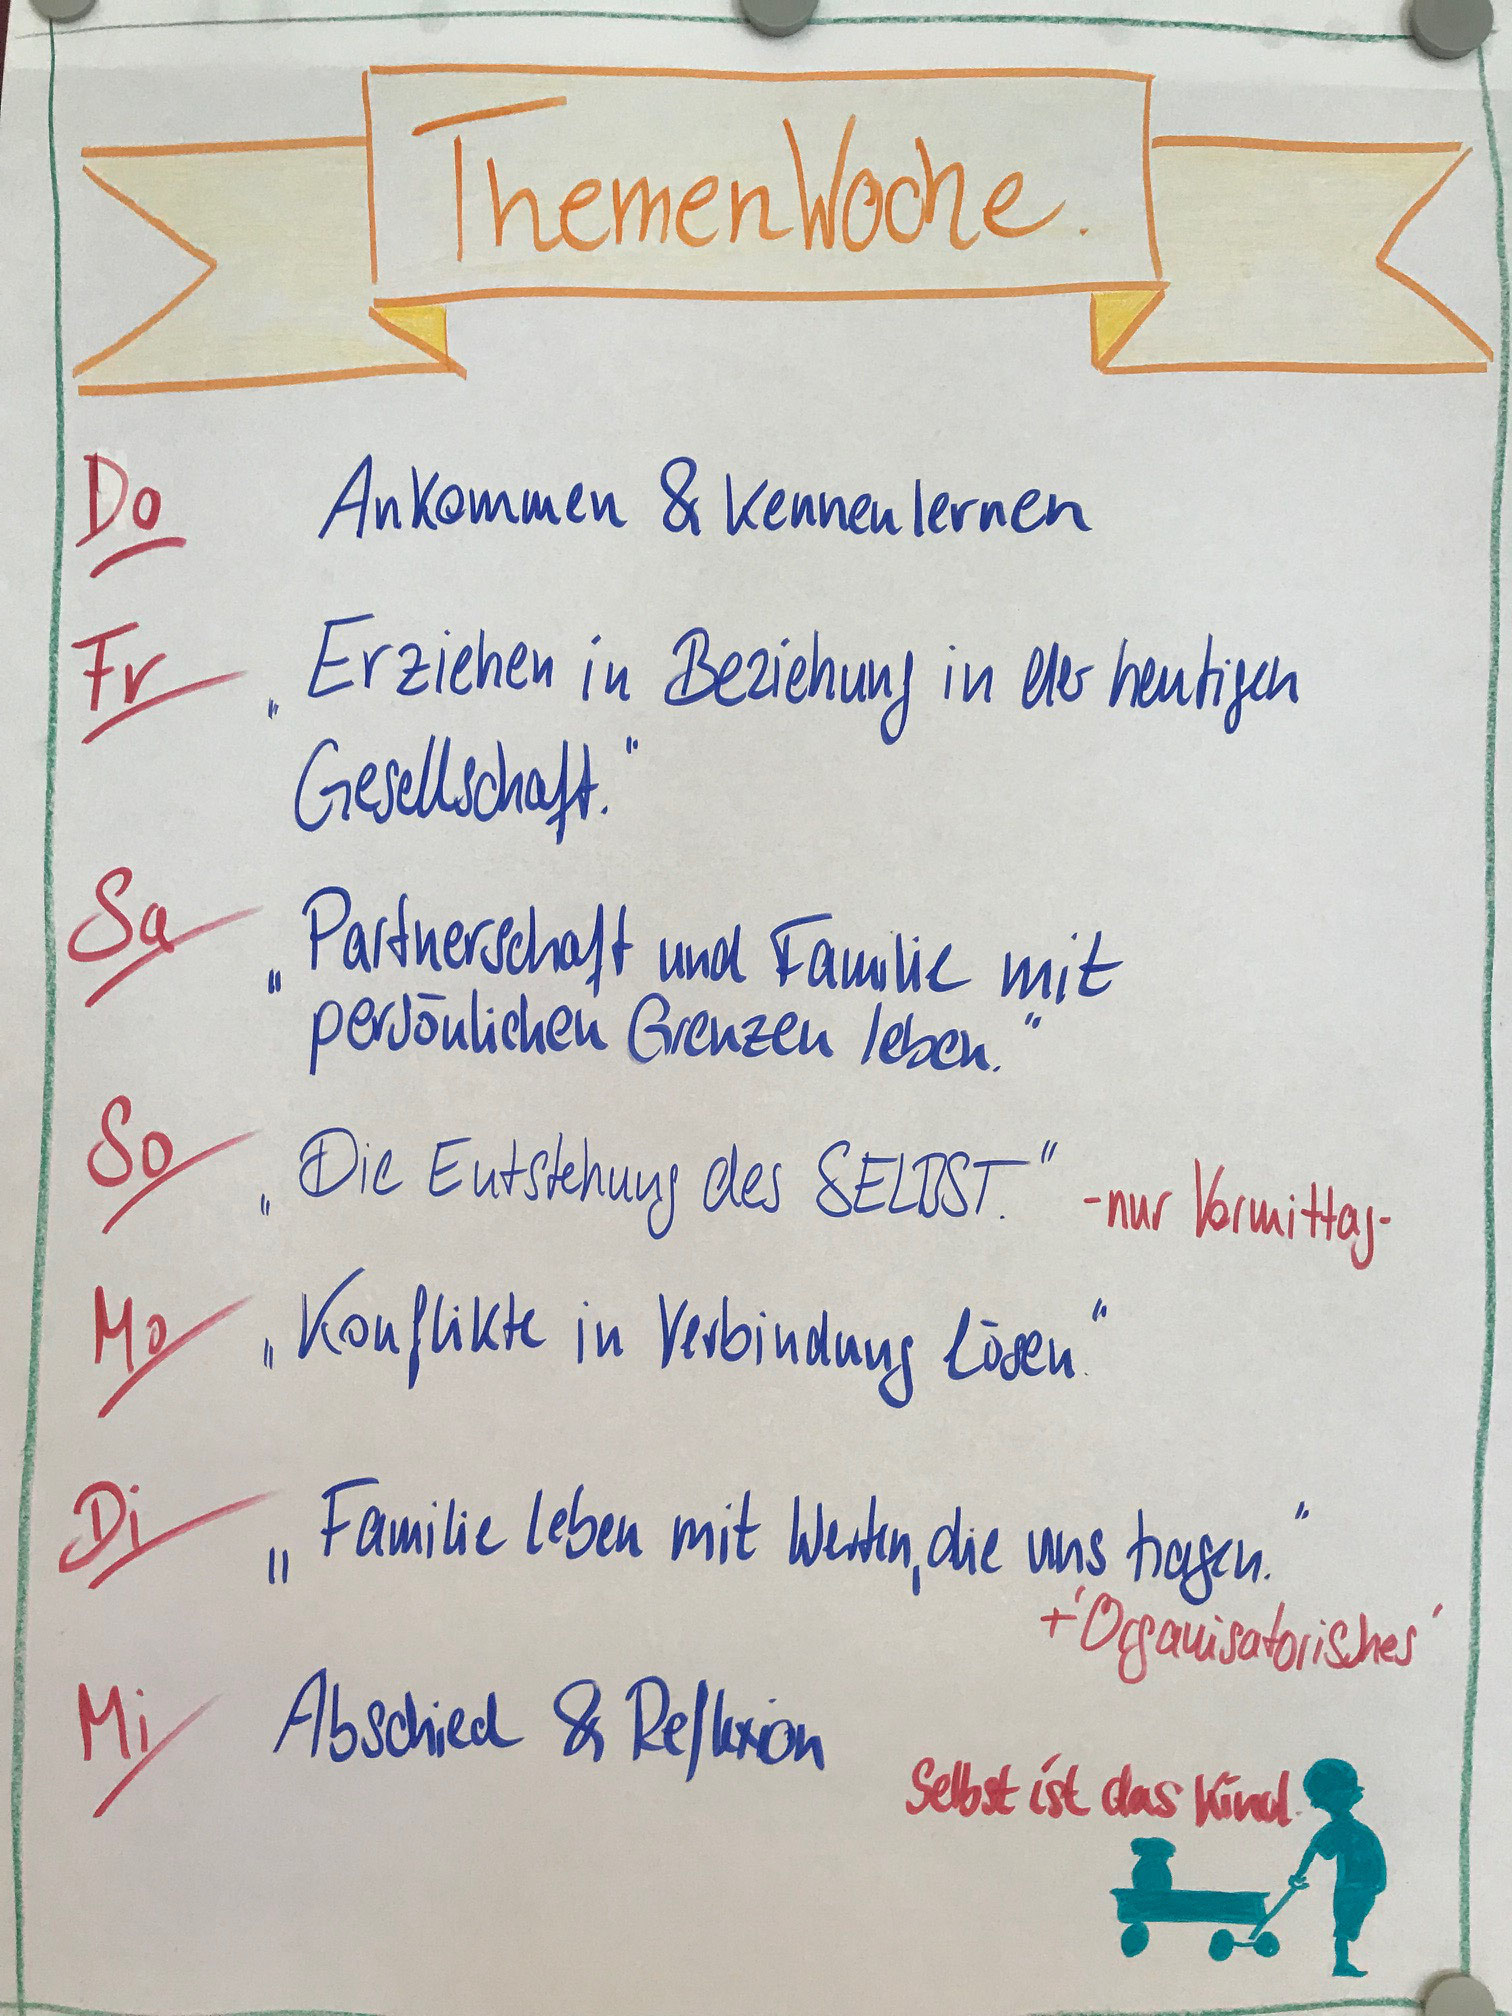 ThemenWoche.
Do Ankommen & kennenlernen
Fr „Erziehen in Beziehung in der heutigen
Gesellschaft."
Sa „Partnerschaft und Familie mit
persönlichen Grenzen leben."
So „Die Entstehung des SELBST." -nur Vormittag-
Mo „Konflikte in Verbindung lösen."
Di „Familie leben mit Werten, die uns tragen."
+'Organisatorisches'
Mi Abschied & Reflexion
Selbst ist das Kind.